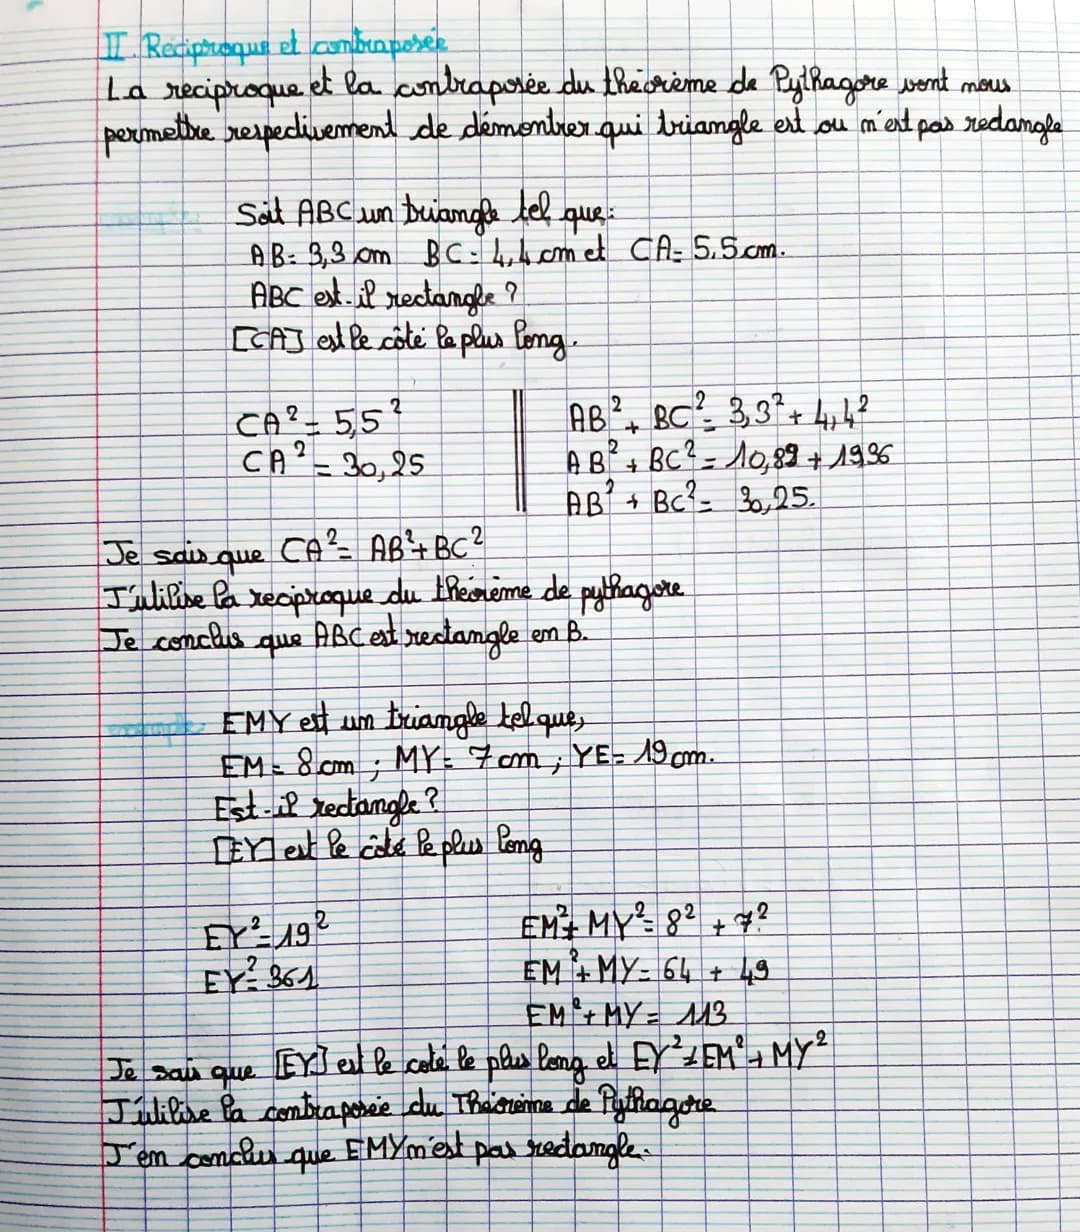 II. Réciproque et contraposée
La réciproque et la contraposée du théorème de Pythagore vont nous
permettre respectivement de démontrer qui triangle est ou n'est pas rectangle
exemple:
Soit ABC un triangle tel que:
AB= 3,3 cm BC= 4,4 cm et CA= 5,5 cm.
ABC est-il rectangle ?
[CA] est le côté le plus long.
CA² = 5,5²
CA² = 30,25
AB² + BC² = 3,3² + 4,4²
AB² + BC² = 10,89 + 19,36
AB² + BC² = 30,25.
Je sais que CA² = AB² + BC²
J'utilise la réciproque du théorème de pythagore
Je conclus que ABC est rectangle en B.
exemple: EMY est un triangle tel que,
EM = 8 cm ; MY = 7 cm ; YE = 19 cm.
Est-il rectangle ?
[EY] est le côté le plus long
EY² = 19²
EY² = 361
EM² + MY² = 8² + 7²
EM² + MY = 64 + 49
EM² + MY = 113
Je sais que [EY] est le coté le plus long et EY² ≠ EM² + MY²
J'utilise la contraposée du Théorème de Pythagore
J'en conclus que EMY n'est pas rectangle.